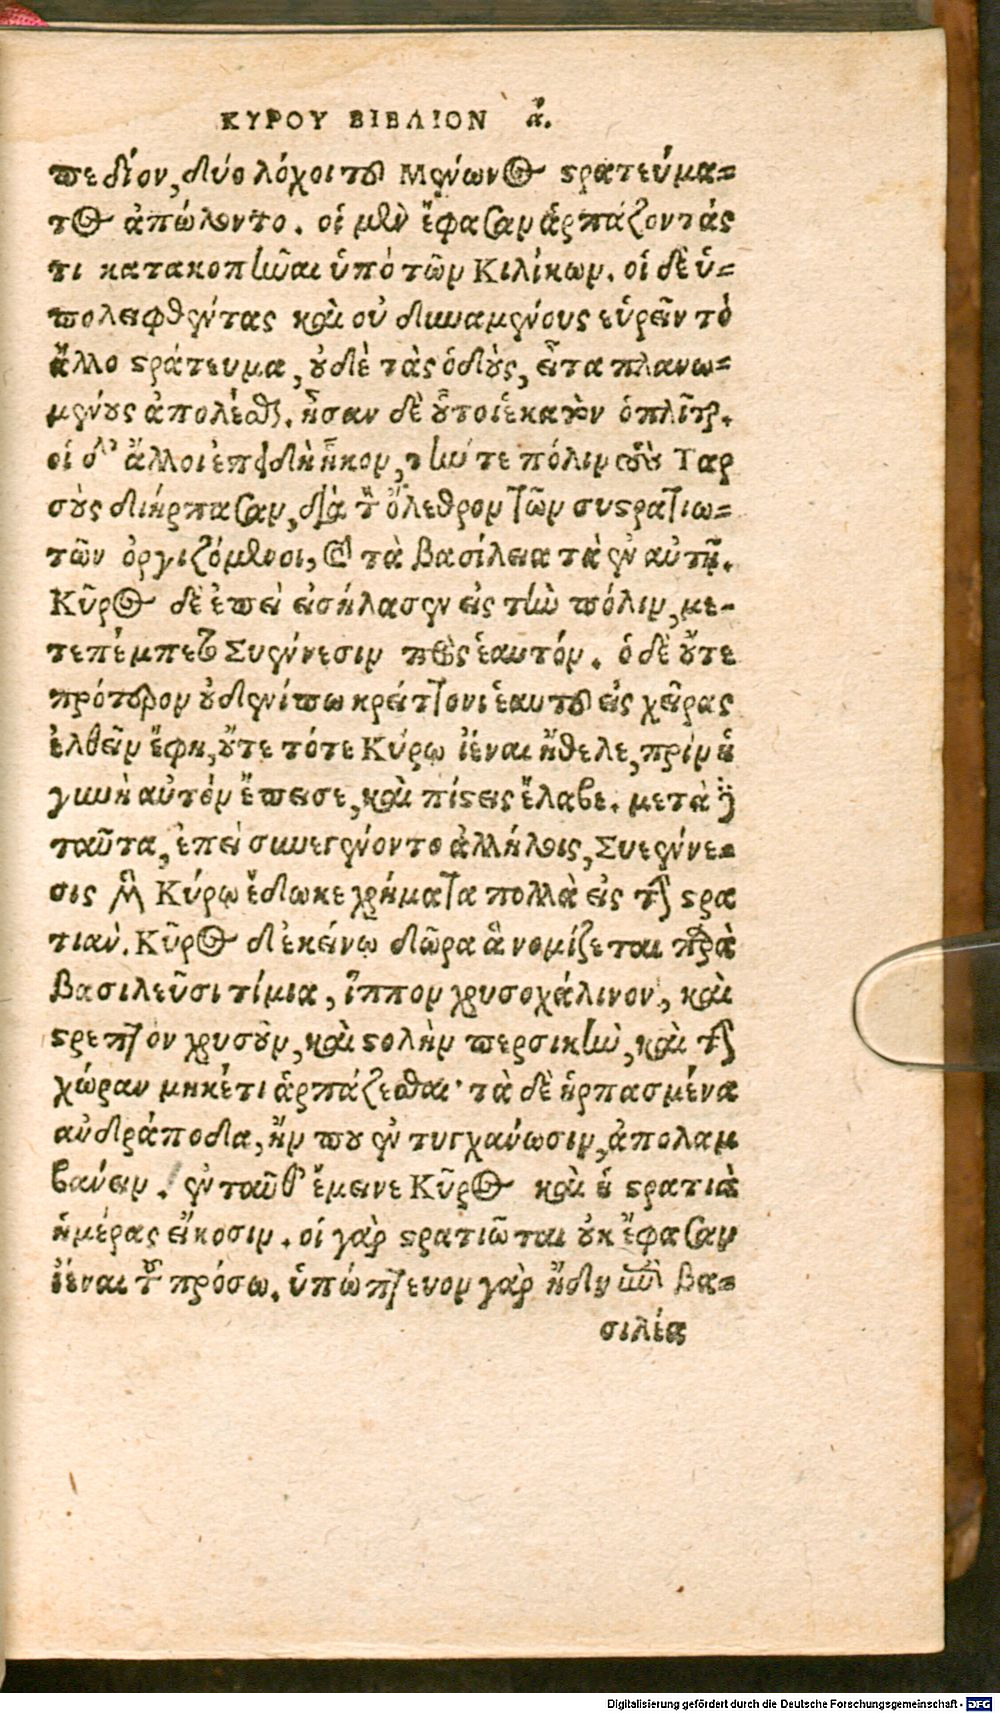 ΚΥΡΟΥ ΒΙΒΛΙΟΝ ά.
πεδίον, δύο λόχοι τοῦ Μένωνος στρατεύμα=
τος ἀπώλοντο. οἱ μὲν ἔφασαν ἁρπάζοντάς
τι κατακοπῆναι ὑπὸ τῶν Κιλίκων. οἱ δὲ ὑ=
πολειφθέντας καὶ οὐ δυναμένους εὑρεῖν τὸ
ἄλλο στράτευμα, οὐδὲ τὰς ὁδοὺς, εἶτα πλανω=
μένους ἀπολέσθαι. ἦσαν δὲ οὗτοι ἑκατὸν ὁπλῖται.
οἱ δ' ἄλλοι ἐπειδὴ ἧκον, τήν τε πόλιν τοὺς Ταρ
σοὺς διήρπασαν, διὰ τὸν ὄλεθρον τῶν συστρατιω=
τῶν ὀργιζόμενοι, καὶ τὰ βασίλεια τὰ ἐν αὐτῇ.
Κῦρος δὲ ἐπεὶ εἰσήλασεν εἰς τὴν πόλιν, με-
τεπέμπετο Συέννεσιν πρὸς ἑαυτόν. ὁ δὲ οὔτε
πρότερον οὐδενί πω κρείττονι ἑαυτοῦ εἰς χεῖρας
ἐλθεῖν ἔφη, οὔτε τότε Κύρῳ ἰέναι ἤθελε, πρὶν ἡ
γυνὴ αὐτὸν ἔπεισε, καὶ πίστεις ἔλαβε. μετὰ δὲ
ταῦτα, ἐπεὶ συνεγένοντο ἀλλήλοις, Συέννε=
σις μὲν Κύρῳ ἔδωκε χρήματα πολλὰ εἰς τὴν στρα
τιάν. Κῦρος δ' ἐκείνῳ δῶρα ἃ νομίζεται παρὰ
βασιλεῦσι τίμια, ἵππον χρυσοχάλινον, καὶ
στρεπτὸν χρυσοῦν, καὶ στολὴν περσικὴν, καὶ τὴν
χώραν μηκέτι ἁρπάζεσθαι· τὰ δὲ ἡρπασμένα
ανδράποδα, ἤν που ἐντυγχάνωσιν, ἀπολαμ
βάνειν. ἐνταῦθ' ἔμεινε Κῦρος καὶ ἡ στρατιὰ
ἡμέρας εἴκοσιν. οἱ γὰρ στρατιῶται οὐκ ἔφασαν
ἰέναι τοῦ πρόσω. ὑπώπτευον γὰρ ἤδη ἐπὶ βα=
σιλέα
Digitalisierung gefördert durch die Deutsche Forschungsgemeinschaft - DFG